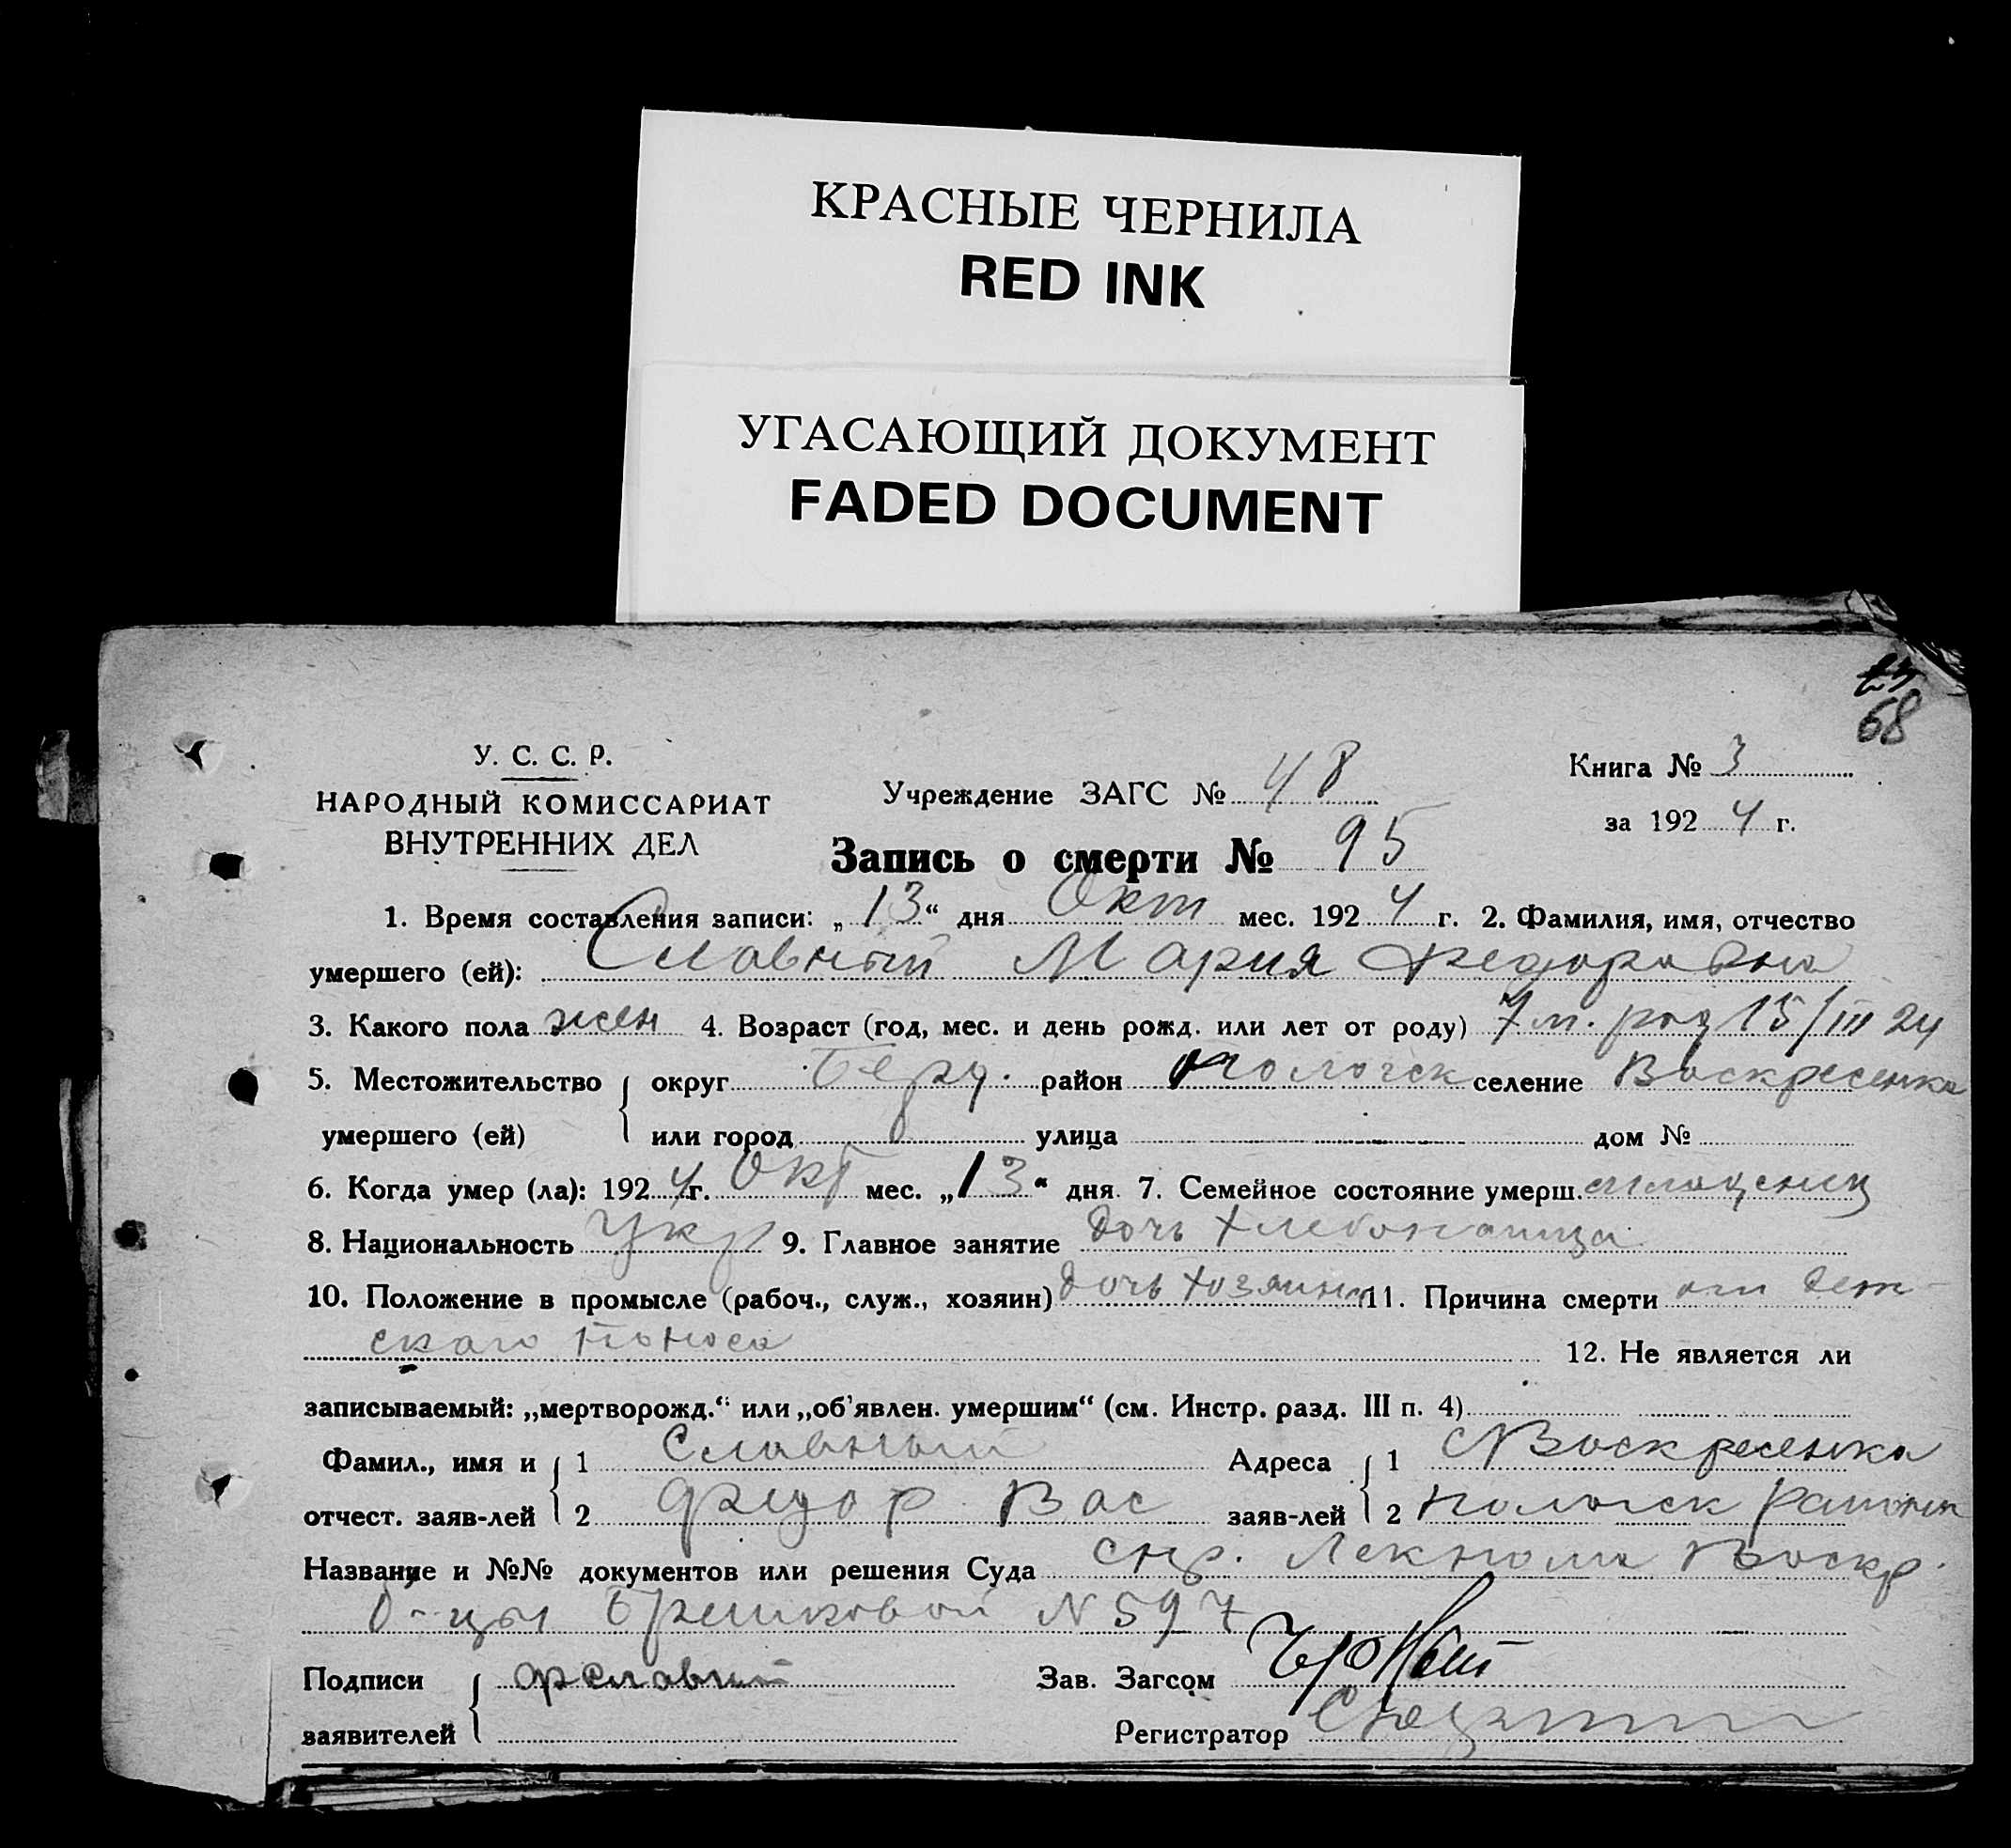 КРАСНЫЕ ЧЕРНИЛА
RED INK
УГАСАЮЩИЙ ДОКУМЕНТ
FADED DOCUMENT
68
У. С. С. Р.
НАРОДНЫЙ КОМИССАРИАТ
ВНУТРЕННИХ ДЕЛ
Учреждение ЗАГС № 48
Книга № 3
за 1924 г.
Запись о смерти № 95
1. Время составления записи: „13“ дня Окт мес. 1924 г. 2. Фамилия, имя, отчество
умершего (ей): Славный Мария Федоровна
3. Какого пола жен 4. Возраст (год, мес. и день рожд. или лет от роду) 7 м. род 15/III 24
5. Местожительство округ Берд. район селение Воскресенка
умершего (ей) или город улица дом №
6. Когда умер (ла): 1924 г. Окт мес. „13“ дня 7. Семейное состояние умерш. младенец
8. Национальность Укр 9. Главное занятие дочь хлебопашца
10. Положение в промысле (рабоч., служ., хозяин) дочь хозяина 11. Причина смерти от дет-
скаго поноса 12. Не является ли
записываемый: „мертворожд.“ или „об’явлен. умершим“ (см. Инстр. разд. III п. 4)
Фамил., имя и 1 Славный Адреса 1 с Воскресенка
отчест. заяв-лей 2 Федор Вас заяв-лей 2 района
Название и №№ документов или решения Суда спр. Лекпома Воскр.
б-цы N 597
Подписи Зав. Загсом
заявителей Регистратор